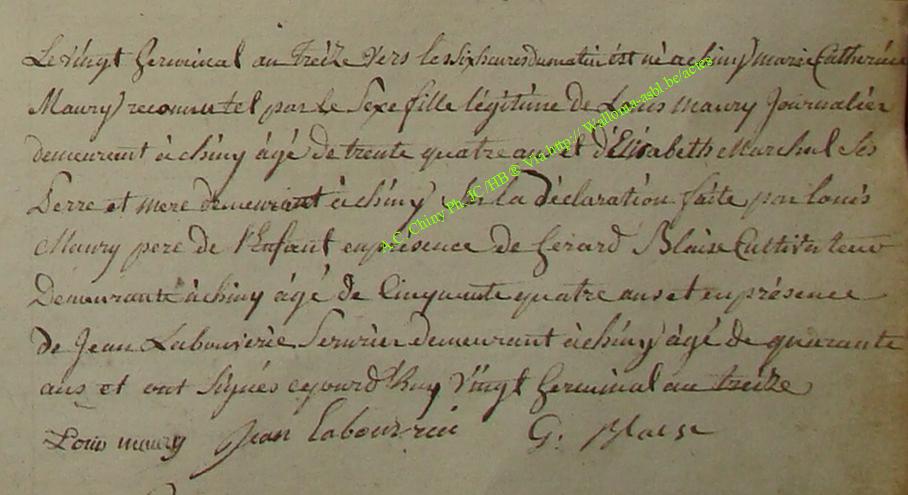 Le vingt Germinal an treize vers les six heures du matin est né a chiny marie Catherine
Maury reconnu tel par le Sexe fille légitime de Louis maury Journalier
demeurant à chiny âgé de trente quatre ans et d'Elisabeth Marchal Ses
Perre et mere demeurant à chiny Sur la déclaration faite par louis
Maury pere de l'Enfant en présence de Gérard Blaise Cultivateur
Demeurante à chiny âgé de Cinquante quatre ans et en présence
de Jean Labouverie Serurier demeurant à chiny âgé de quarante
ans et ont Signés cejourd'huy Vingt Germinal an treize
Louis maury Jean labouverie G. Blaise
A.C. Chiny Ph. JC /HB ® Via http// Wallonia-asbl.be/actes